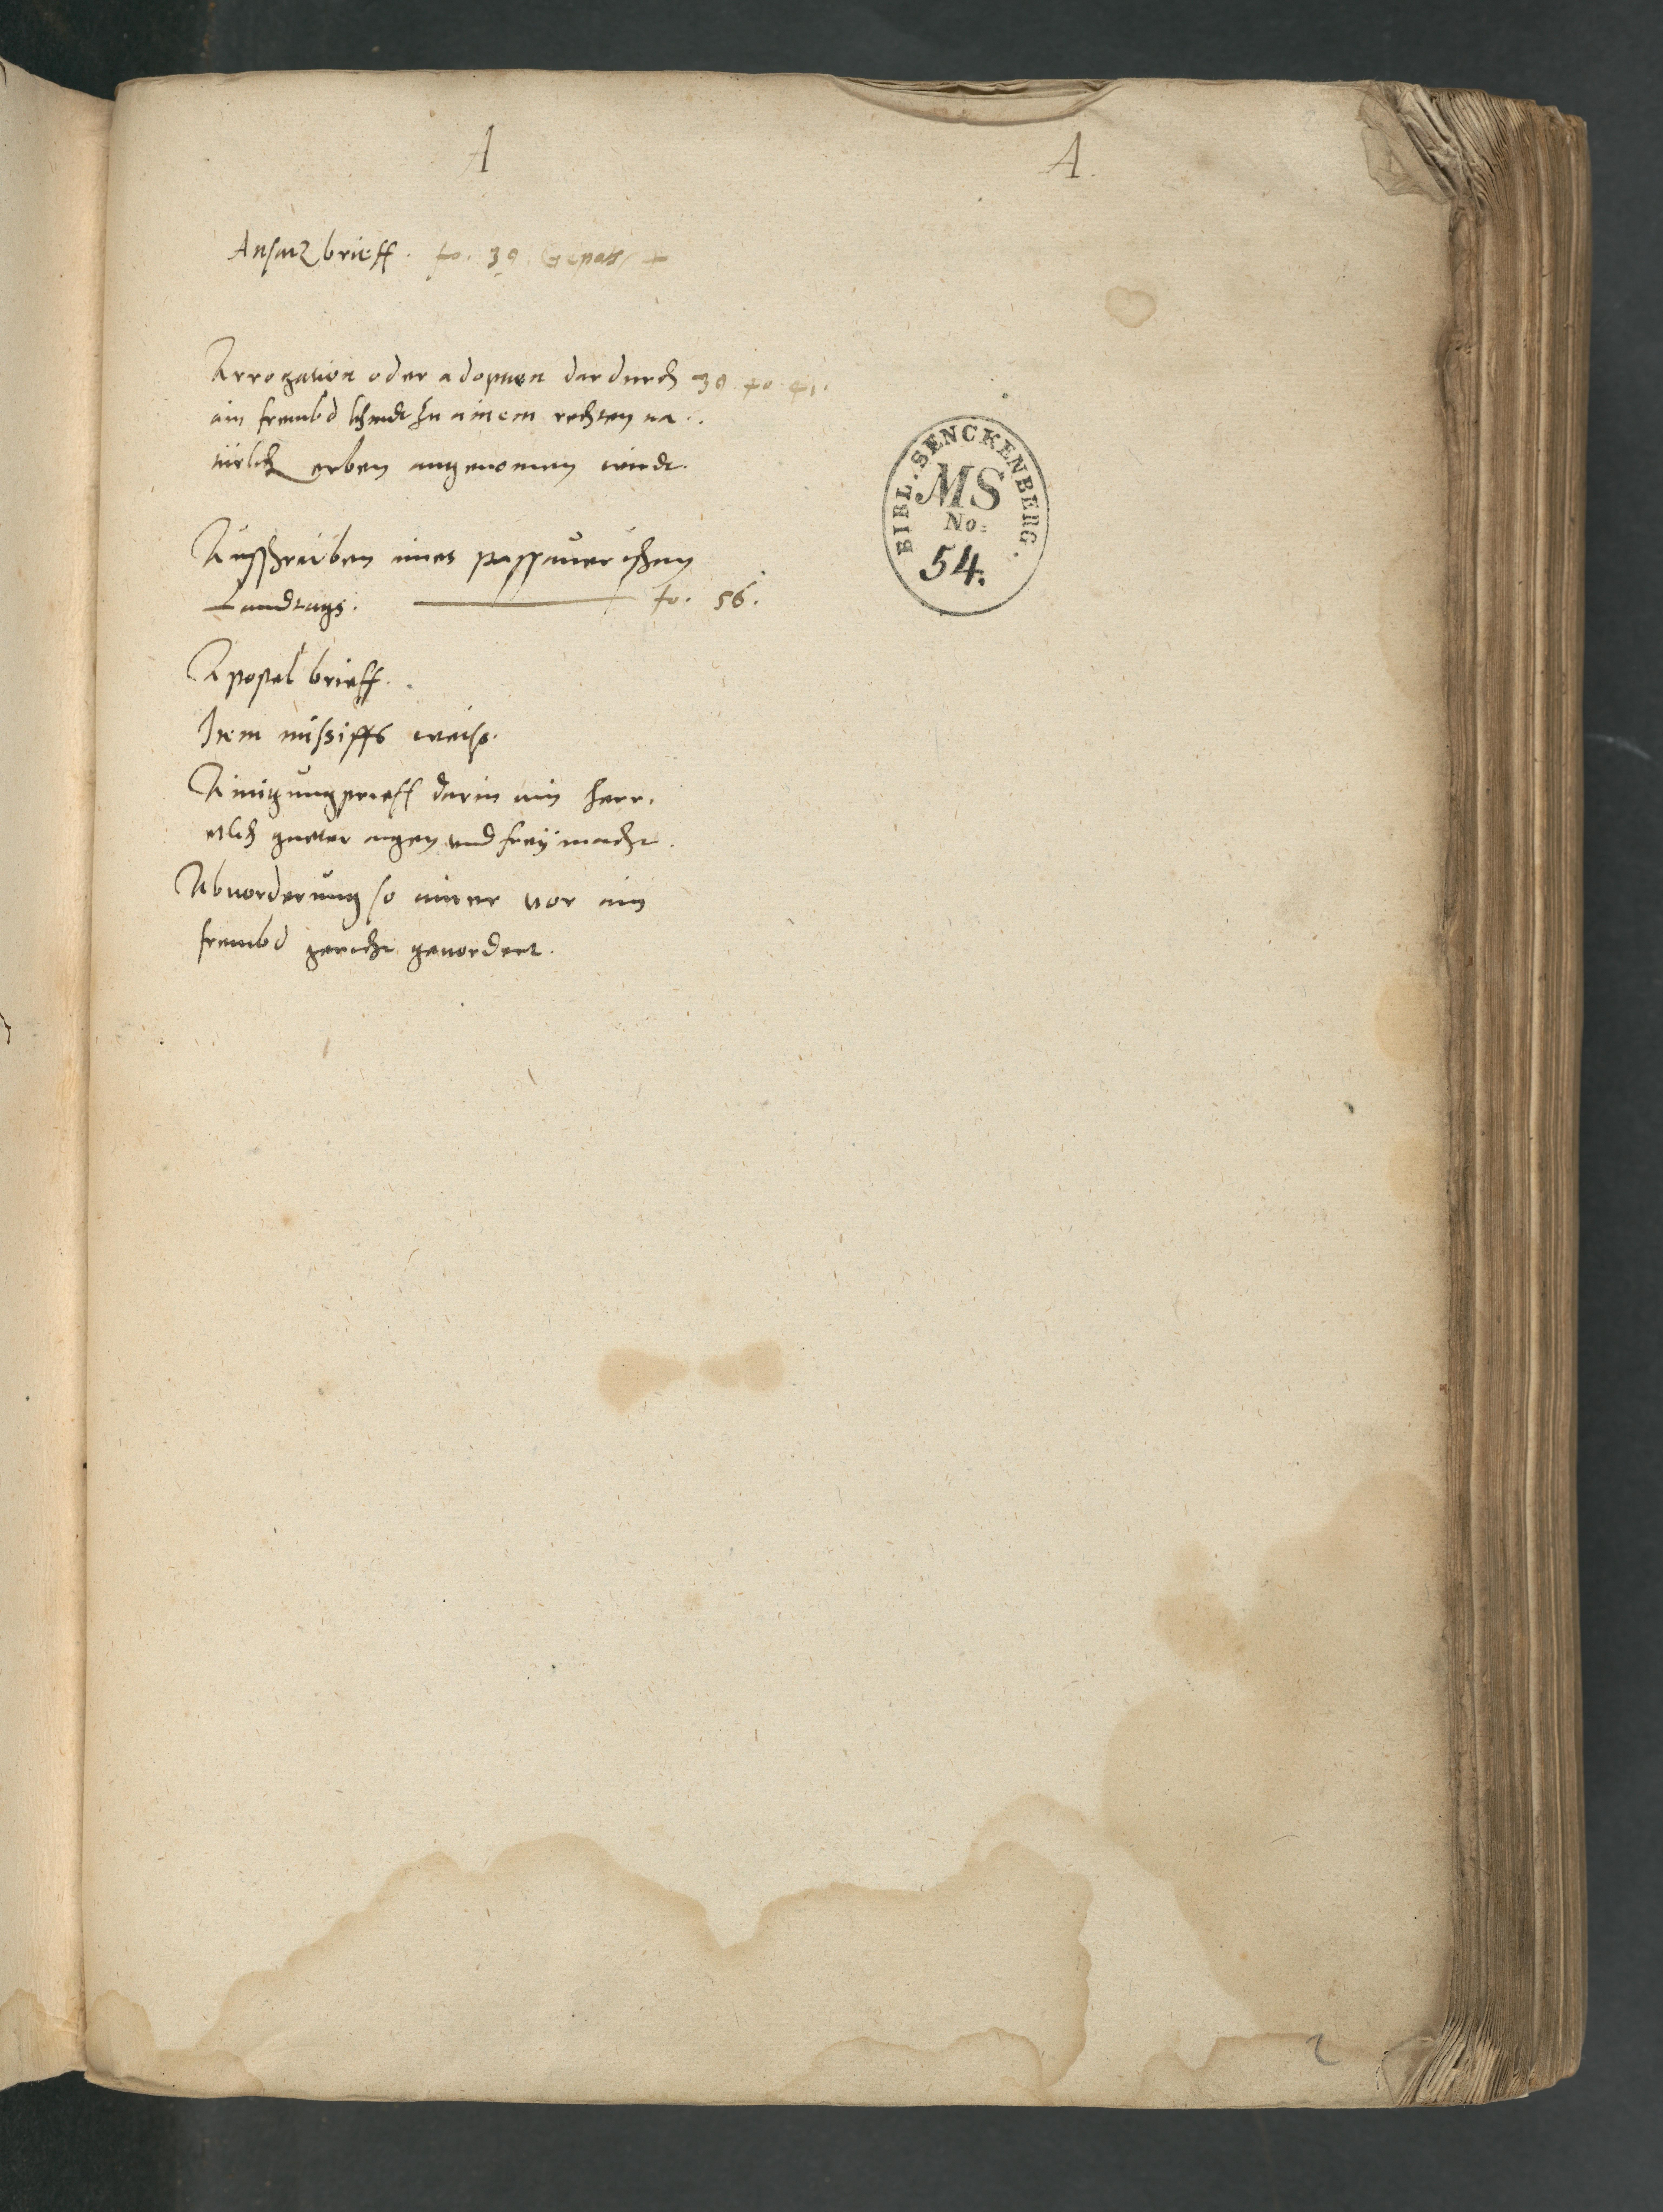 A A.
Ansatz brieff. fo. 39.
Arrogation oder adoption dardurch 39. fo. 41.
ain frembd khindt zu ainem rechten na..
türlich erben angenomen wirdt.
Aussschreiben aines passauerischen
Landtags. fo. 56.
Apostel brieff.
Item missiffs weiss.
Ainigungprieff darin ain herr.
etlich gueter aigen und frey macht.
Abuorderung so ainer vor ain
frembd gericht geuordert.
BIBL. SENCKENBERG.
MS
No:
54.
2